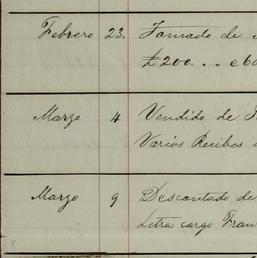 Febrero 23. Tomado de
£200... c 60
Marzo 4 Vendido de
Varios Recibos
Marzo 9 Descontado de
Letra cargo Fran